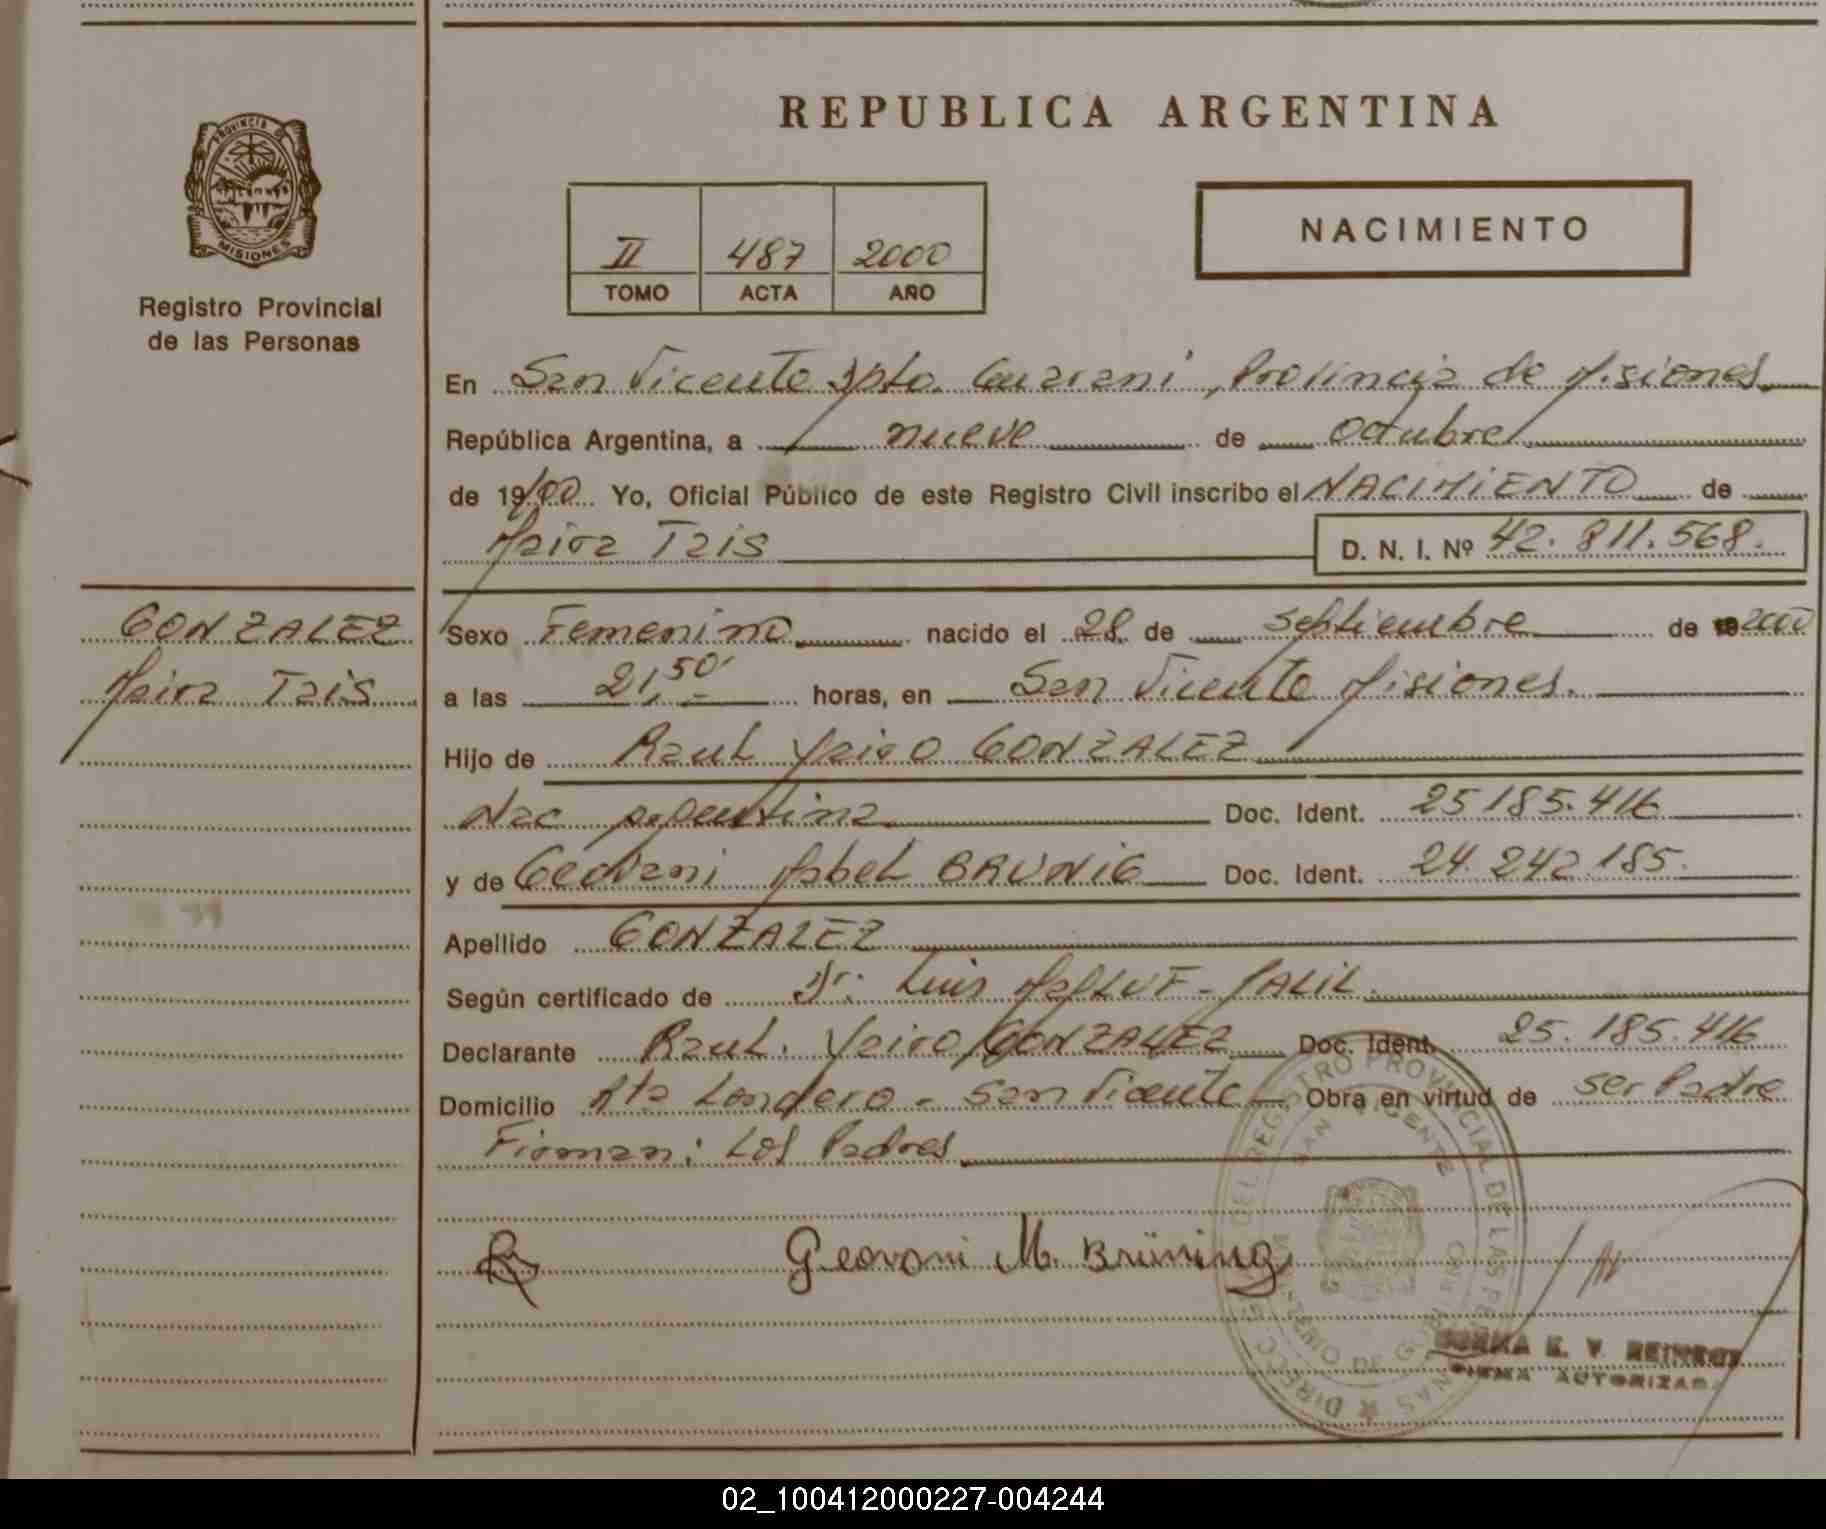 REPUBLICA ARGENTINA
PROVINCIA DE
MISIONES
Registro Provincial
de las Personas
II 487 2000
TOMO ACTA AÑO
NACIMIENTO
En San Vicente Dpto. Guarani, Provincia de Misiones
República Argentina, a nueve de octubre
de 19/00 Yo, Oficial Público de este Registro Civil inscribo el NACIMIENTO de
Maira Tais D. N. I. Nº 42.811.568.
GONZALEZ
Maira Tais
Sexo Femenino nacido el 28 de Septiembre de 2000
a las 21,50 horas, en San Vicente Misiones.
Hijo de Raul Yairo GONZALEZ
Nac argentina Doc. Ident. 25185.416
y de Geovani Mabel BRUNIG Doc. Ident. 24.242.185.
Apellido GONZALEZ
Según certificado de Dr. Luis MALLUF-JALIL
Declarante Raul. Yairo GONZALEZ Doc. Ident. 25.185.416
Domicilio Rta Londero - San Vicente Obra en virtud de ser Padre
Firman: Los Padres
Geovani M. Brüning
SAN VICENTE
E. V.
FIRMA AUTORIZADA
02_100412000227-004244